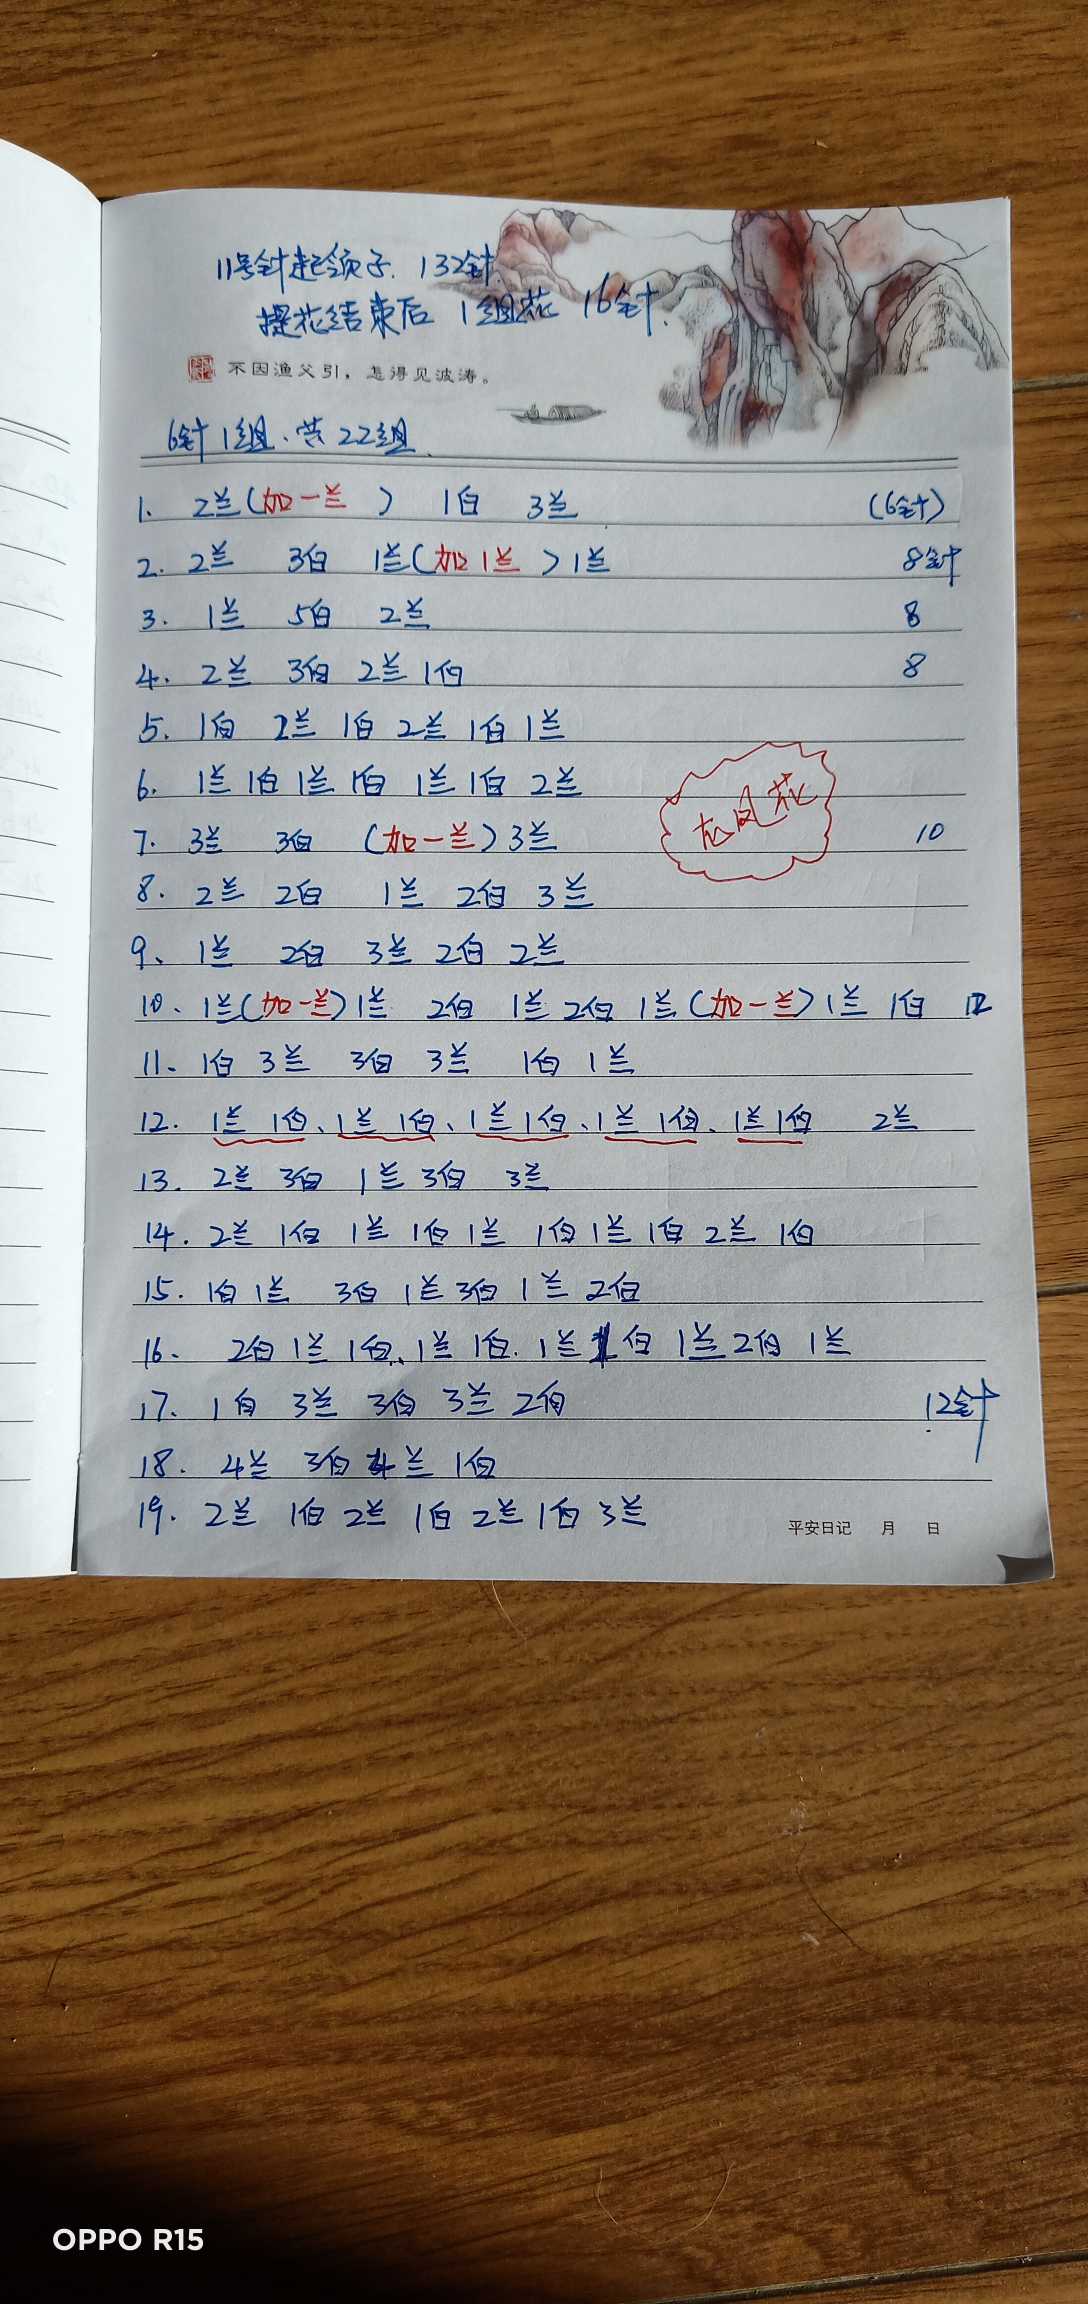 11号针起领子. 132针.
提花结束后 1组花 16针.
不因渔父引，怎得见波涛。
6针1组.共22组.
1. 2兰(加一兰) 1白 3兰 (6针)
2. 2兰 3白 1兰(加1兰)1兰 8针
3. 1兰 5白 2兰 8
4. 2兰 3白 2兰 1白 8
5. 1白 2兰 1白 2兰 1白 1兰
6. 1兰 1白 1兰 1白 1兰 1白 2兰
龙凤花
7. 3兰 3白 (加一兰)3兰 10
8. 2兰 2白 1兰 2白 3兰
9、1兰 2白 3兰 2白 2兰
10、1兰(加一兰)1兰 2白 1兰 2白 1兰(加一兰)1兰 1白 12
11、1白 3兰 3白 3兰 1白 1兰
12. 1兰 1白、1兰 1白、1兰 1白、1兰 1白、1兰 1白 2兰
13. 2兰 3白 1兰 3白 3兰
14. 2兰 1白 1兰 1白 1兰 1白 1兰 1白 2兰 1白
15. 1白 1兰 3白 1兰 3白 1兰 2白
16. 2白 1兰 1白、1兰 1白. 1兰 1白 1兰 2白 1兰
17. 1白 3兰 3白 3兰 2白 12针
18. 4兰 3白 4兰 1白
19. 2兰 1白 2兰 1白 2兰 1白 3兰
平安日记 月 日
OPPO R15